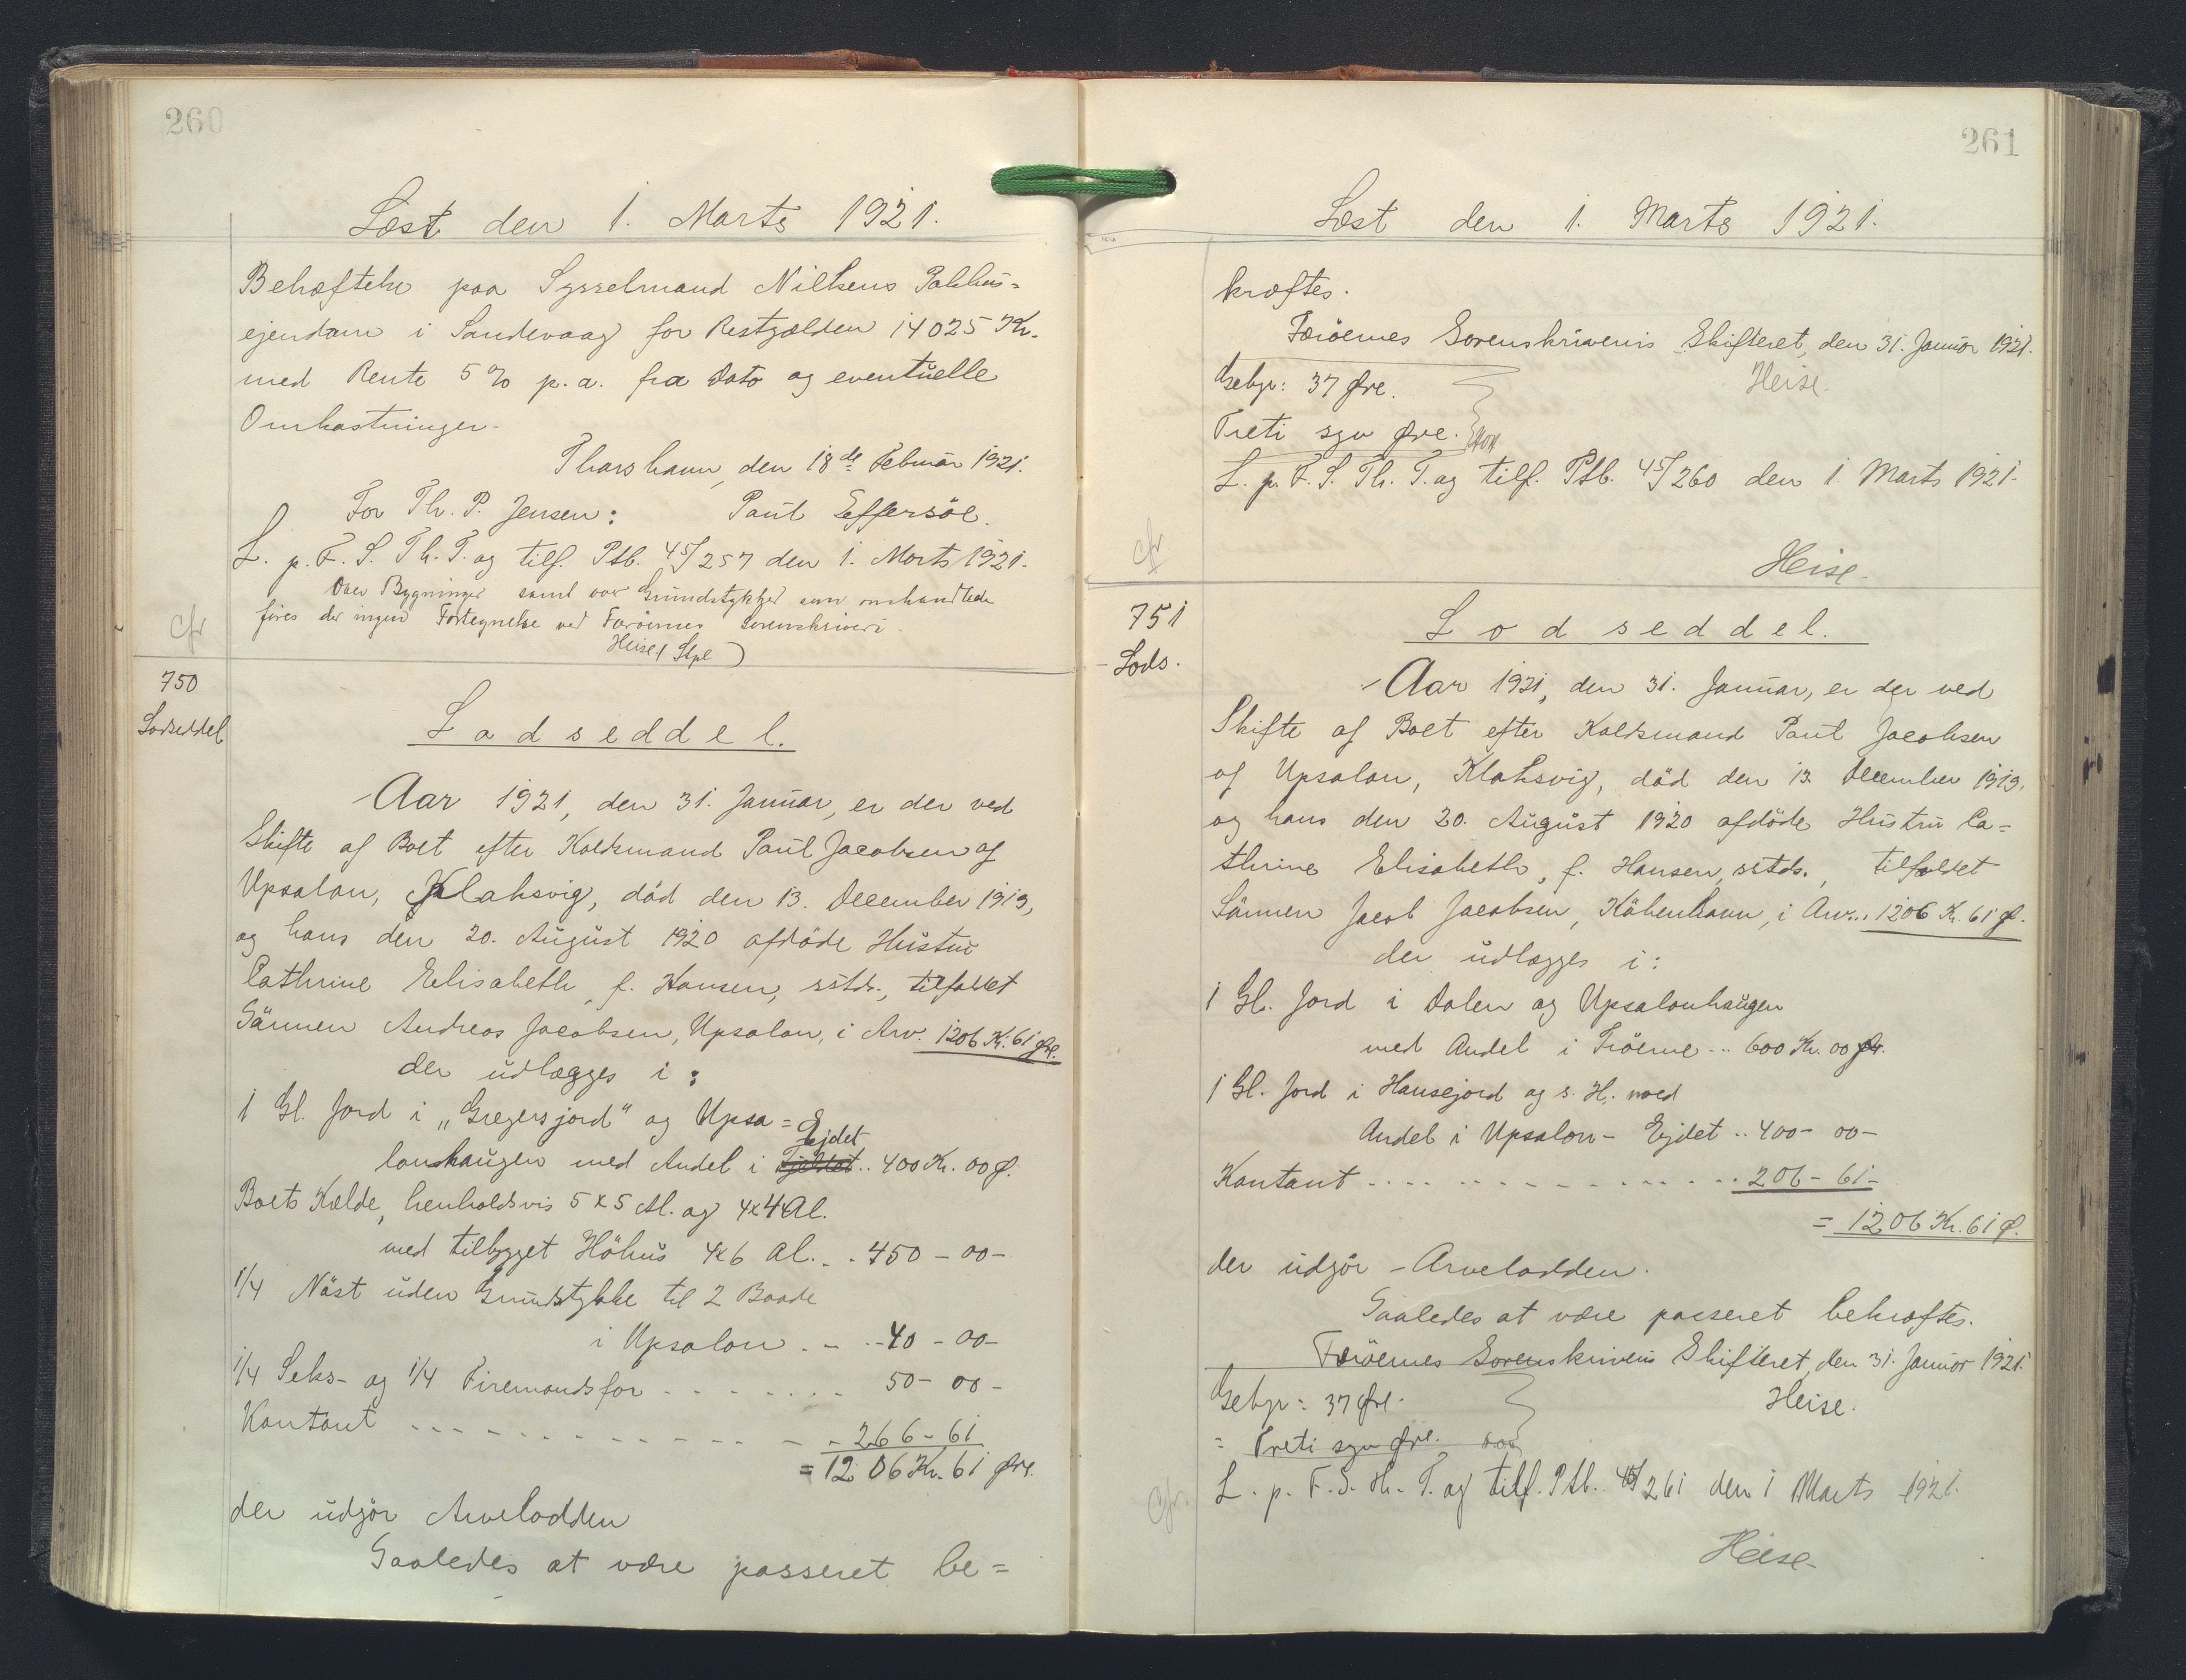 260
Læst den 1. Marts 1921.
Behæftelse paa Sysselmand Nielsens Pakhus=
ejendom i Sandevaag for Restgælden 14025 Kr.
med Rente 5 % p. a. fra Dato og eventuelle
Omkostninger.
Thorshavn, den 18de Februar 1921.
For Th. P. Jensen: Paul Effersöe.
L. p. F. S. Th. T. og tilf. Ptb. 45/257 den 1. Marts 1921.
Over Bygninger samt over Grundstykker som omhandlede
föres der ingen Fortegnelse ved Færöernes Sorenskriveri.
Heise / Stpl )
cfr
750
Lodseddel
Lodseddel.
Aar 1921, den 31. Januar, er der ved
Skifte af Boet efter Koldsmand Paul Jacobsen af
Upsalon, Klaksvig, död den 13. December 1919,
og hans den 20. August 1920 afdöde Hustru
Cathrine Elisabeth, f. Hansen, sstds., tilfaldet
Sönnen Andreas Jacobsen, Upsalon, i Arv. 1206 Kr. 61 Øre.
der udlægges i:
1 Gl. Jord i „Gregersjord" og Upsa=
Ejdet
lonshaugen med Andel i Fjeldet.. 400 Kr. 00 Ø.
Boets Kælde, henholdsvis 5 x 5 Al. og 4x4 Al.
med tilbygget Höhus 4x6 Al... 450 - 00 -
1/4 Nöst uden Grundstykke til 2 Baade
i Upsalon. - .. 40 - 00 -
1/4 Seks- og 1/4 Firemandsfar - - - - - - 50 - 00 -
Kontant - - - - - - - - - - - - 266 - 61
= 1206 Kr. 61 Øre.
der udgör Arvelodden
Saaledes at være passeret be=
261
Læst den 1. Marts 1921.
kræftes.
Færöernes Sorenskriveris Skifteret, den 31. Januar 1921.
Gebyr: 37 Øre. Heise.
Treti syv Øre.
L. p. F. S. Th. T. og tilf. Ptb. 45/260 den 1. Marts 1921.
cfr
Heise.
751
Lods.
Lodseddel.
Aar 1921, den 31. Januar, er der ved
Skifte af Boet efter Koldsmand Paul Jacobsen
af Upsalon, Klaksvig, död den 13. December 1919,
og hans den 20. August 1920 afdöde Hustru Ca=
thrine Elisabeth, f. Hansen, sstds., tilfaldet
Sönnen Jacob Jacobsen, Köbenhavn, i Arv.. 1206 Kr. 61 Ø.
der udlægges i:
1 Gl. Jord i Dalen og Upsalonhaugen
med Andel i Tröerne .. 600 Kr. 00 Ør.
1 Gl. Jord i Hansejord og s. H. med
Andel i Upsalon - Ejdet .. 400 - 00 -
Kontant - - - - - - - - - - - - 206 - 61 -
= 1206 Kr. 61 Ø.
der udgör Arvelodden.
Saaledes at være passeret bekræftes.
Færöernes Sorenskriveris Skifteret, den 31. Januar 1921.
Gebyr: 37 Øre. Heise.
= Treti syv Øre.
cfr.
L. p. F. S. Th. T. og tilf. Ptb. 45/261 den 1 Marts 1921.
Heise.